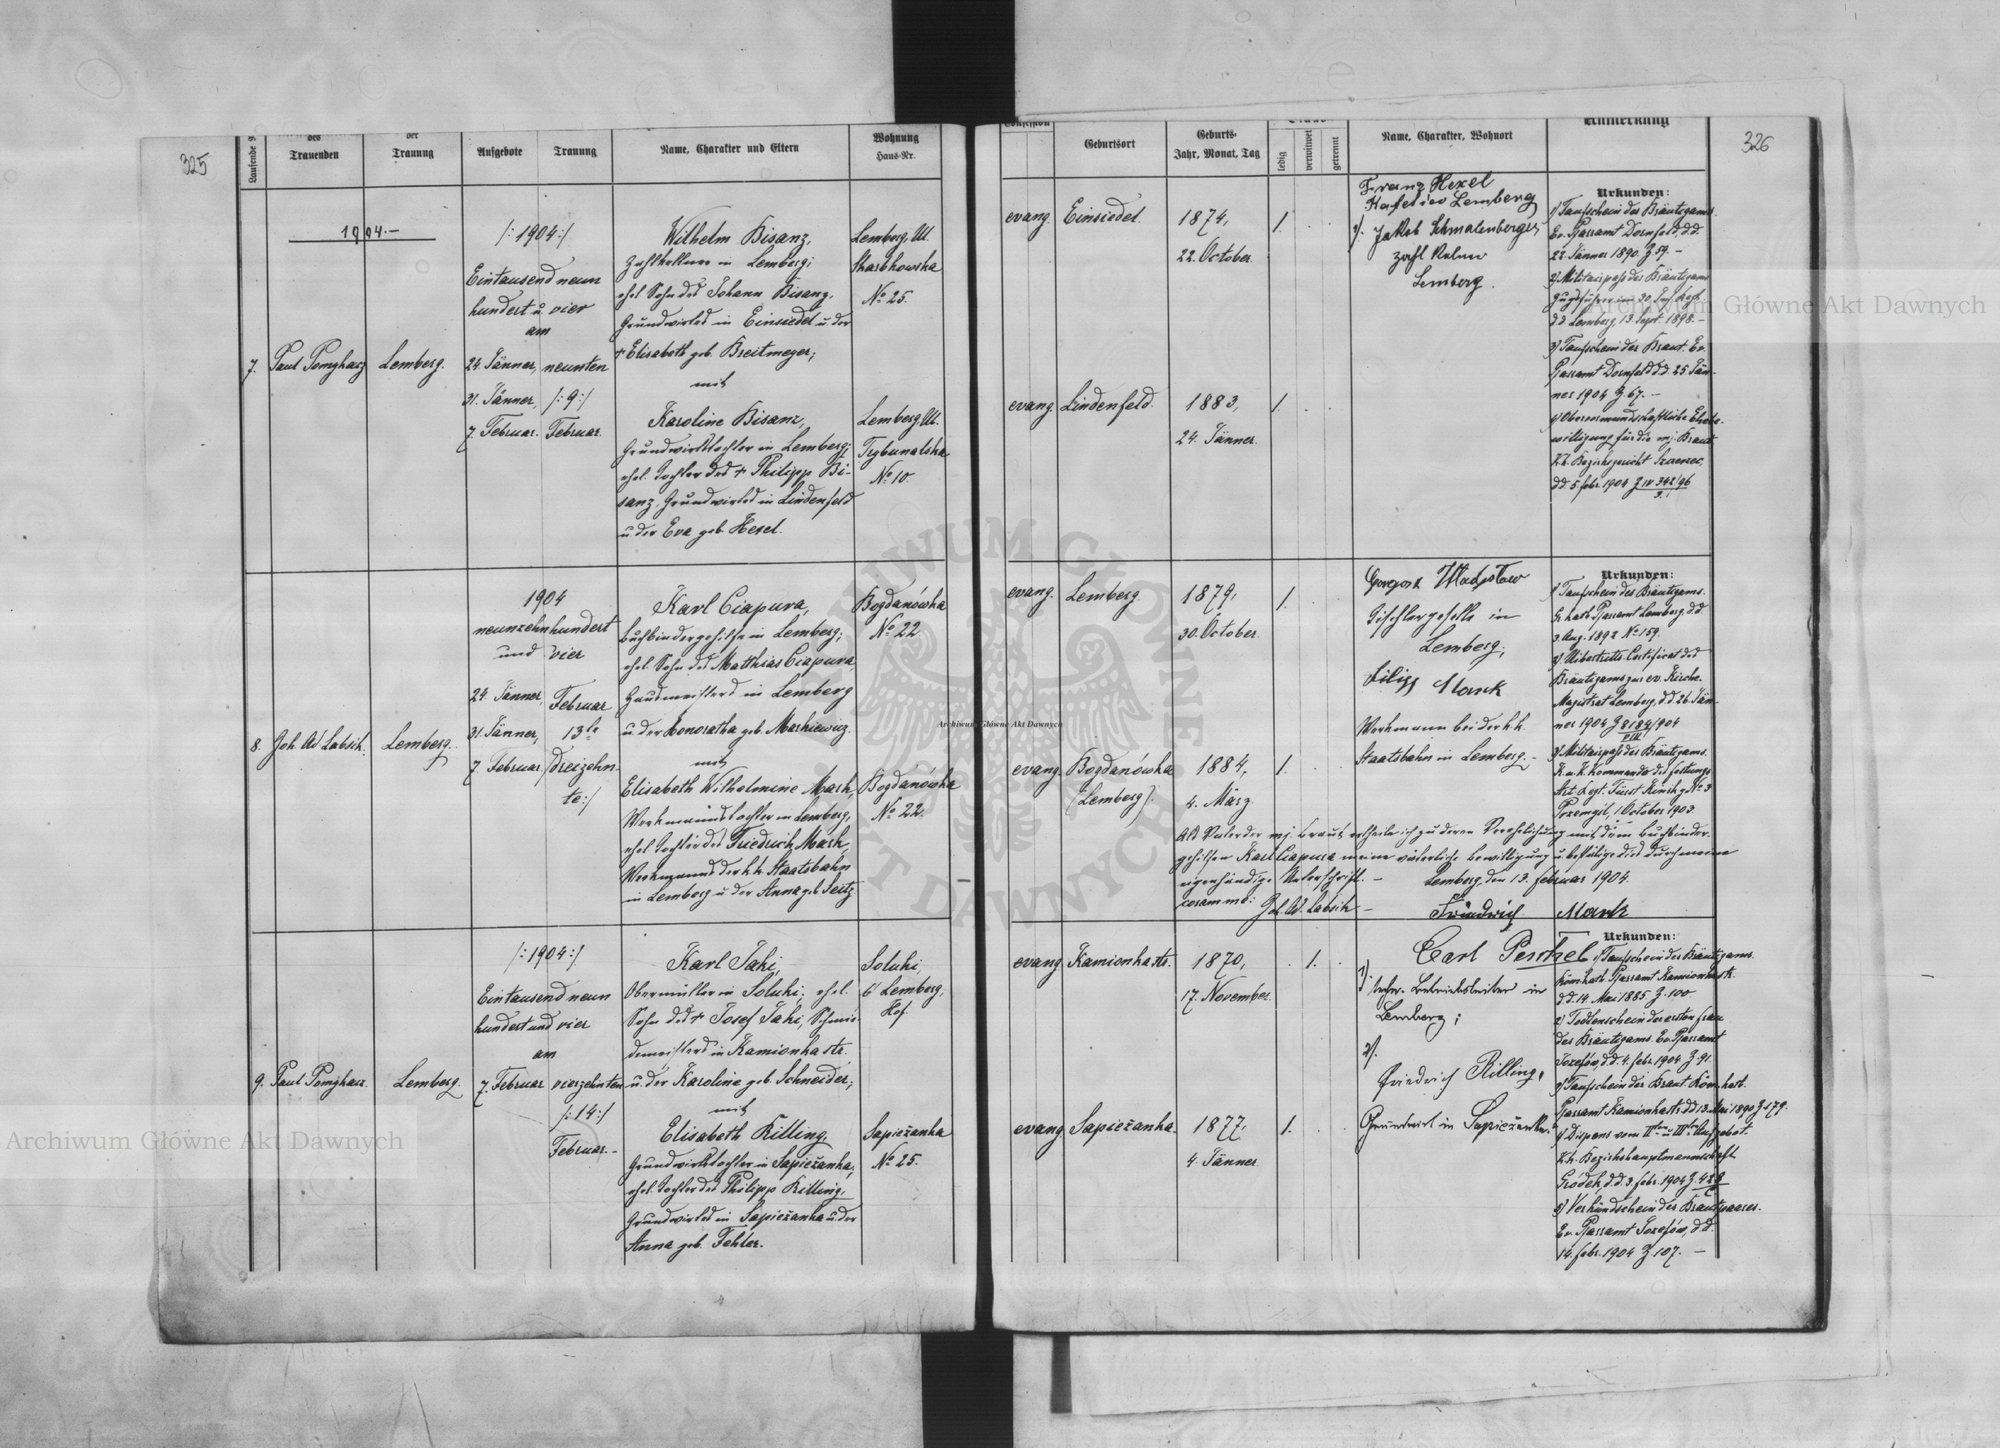 325
Laufende
des
Trauenden
der
Trauung
Aufgebote
Trauung
Name, Charakter und Eltern
Wohnung
Haus-Nr.
1904.-
7.
Paul Pomykacz
Lemberg.
/:1904:/
Eintausend neun
hundert u. vier
am
24. Jänner,
31. Jänner,
7. Februar.
neunten
/:9:/
Februar.
Wilhelm Bisanz,
Zahlkellner in Lemberg;
ehel. Sohn des Johann Bisanz,
Grundwirtes in Einsiedel u. der
† Elisabeth geb. Breitmeyer;
mit
Karoline Bisanz,
Grundwirthstochter in Lemberg;
ehel. Tochter des † Philipp Bi-
sanz, Grundwirtes in Lindenfeld
u. der Eva geb. Hexel.
Lemberg, Ul.
Skarbkowska
No 25.
Lemberg, Ul.
Trybunalska
No 10.
8.
Joh. Ad. Labsik.
Lemberg.
1904
neunzehnhundert
und vier
24. Jänner,
31. Jänner,
7. Februar.
Februar
13te
/dreizehn-
te:/
Karl Ciapura,
Buchbindergehilfe in Lemberg;
ehel. Sohn des Matthias Ciapura,
in Lemberg
u. der Honoratha geb. Markiewicz.
mit
Elisabeth Wilhelmine Mark,
Werkmannstochter in Lemberg,
ehel. Tochter des Friedrich Mark,
Werkmanns der k.k. Staatsbahn
in Lemberg u. der Anna geb. Seitz
Bogdanówka
No 22
Bogdanówka
No 22.
9.
Paul Pomykacz.
Lemberg.
/:1904:/
Eintausend neun
hundert und vier
am
7. Februar
vierzehnten
/:14:/
Februar.-
Karl Jaki,
Obermüller in Soluki; ehel.
Sohn des † Josef Jaki, Schmie-
demeisters in Kamionka str.
u. der Karoline geb. Schneider;
mit
Elisabeth Rilling,
Grundwirthstochter in Sapieżanka;
ehel. Tochter des Philipp Rilling,
Grundwirtes in Sapieżanka u. der
Anna geb. Fehler.
Soluki,
Lemberg,
Hof.
Sapieżanka
No 25.
326
Confession
Geburtsort
Geburts-
Jahr, Monat, Tag
ledig
verwitwet
getrennt
Name, Charakter, Wohnort
Anmerkung
evang.
Einsiedel
1874,
22. October.
1.
evang.
Lindenfeld.
1883,
24. Jänner.
1.
Franz Hexel
Lemberg
2). Jakob Schmalenberger,
Zahlkelner
Lemberg.
Urkunden:
1) Taufschein des Bräutigams.
Ev. Pfarramt Dornfeld, d.d.
22. Jänner 1890. Z. 59. -
2) Militairpass des Bräutigams
d.d. Lemberg, 13. Sept. 1898. -
3) Taufschein der Braut. Ev.
Pfarramt Dornfeld d.d. 25. Jän-
ner 1904 Z. 67. -
4) Obervormundschaftliche Ehebe-
willigung für die mj. Braut
K.k. Bezirksgericht Szczerzec,
d.d. 5. Febr. 1904 Z IV 342/96
evang.
Lemberg.
1879,
30. October.
1.
evang.
Bogdanówka
(Lemberg).
1884,
4. März.
1.
Tischlergeselle in
Lemberg;
Filipp Mark
Werkmann bei der k.k.
Staatsbahn in Lemberg. -
Urkunden:
1) Taufschein des Bräutigams.
Gr. kath. Pfarramt Lemberg, d.d.
3. Aug. 1892 No 159.
2) Uibertritts-Certificat des
Bräutigams zur ev. Kirche.
Magistrat Lemberg, d.d. 26. Jän-
ner 1904 Z
3) Militairpass des Bräutigams.
K.u.K. Kommando des Festungs
Art. Regt. Fürst Kinsky No 3
Przemysl, 1. October 1903.
Als Vater der mj. Braut ertheile ich zu deren Verehelichung mit dem Buchbinder-
gehilfen Karl Ciapura meine väterliche Bewilligung u. bestätige dies durch meine
eigenhändige Unterschrift. - Lemberg, den 13. Februar 1904.
coram me:
Joh. Ad. Labsik - Friedrich Mark
evang.
Kamionka str.
1870,
17. November.
1.
evang.
Sapieżanka.
1877,
4. Jänner.
1.
1).
Carl Peschel
Betriebsleiter in
Lemberg;
2).
Friedrich Rilling,
Grundwirt in Sapieżanka.
Urkunden:
1) Taufschein des Bräutigams.
Röm. kath. Pfarramt Kamionka str.
d.d. 14. Mai 1885 Z. 100
2) Todtenschein der ersten Frau
des Bräutigams. Ev. Pfarramt
Józefów, d.d. 4. Febr. 1904 Z. 91.
3) Taufschein der Braut. Röm. kath.
Pfarramt Kamionka str. d.d. 13. Mai 1890 Z. 179.
4) Dispens vom IIten u. IIIten Aufgebot.
K.k. Bezirkshauptmannschaft
Grodek, d.d. 3. Febr. 1904 Z.
5) Verkündschein des Brautpaares.
Ev. Pfarramt Józefów, d.d.
14. Febr. 1904 Z. 107. -
Archiwum Główne Akt Dawnych
Archiwum Główne Akt Dawnych
Archiwum Główne Akt Dawnych
ARCHIWUM GŁÓWNE
AKT DAWNYCH